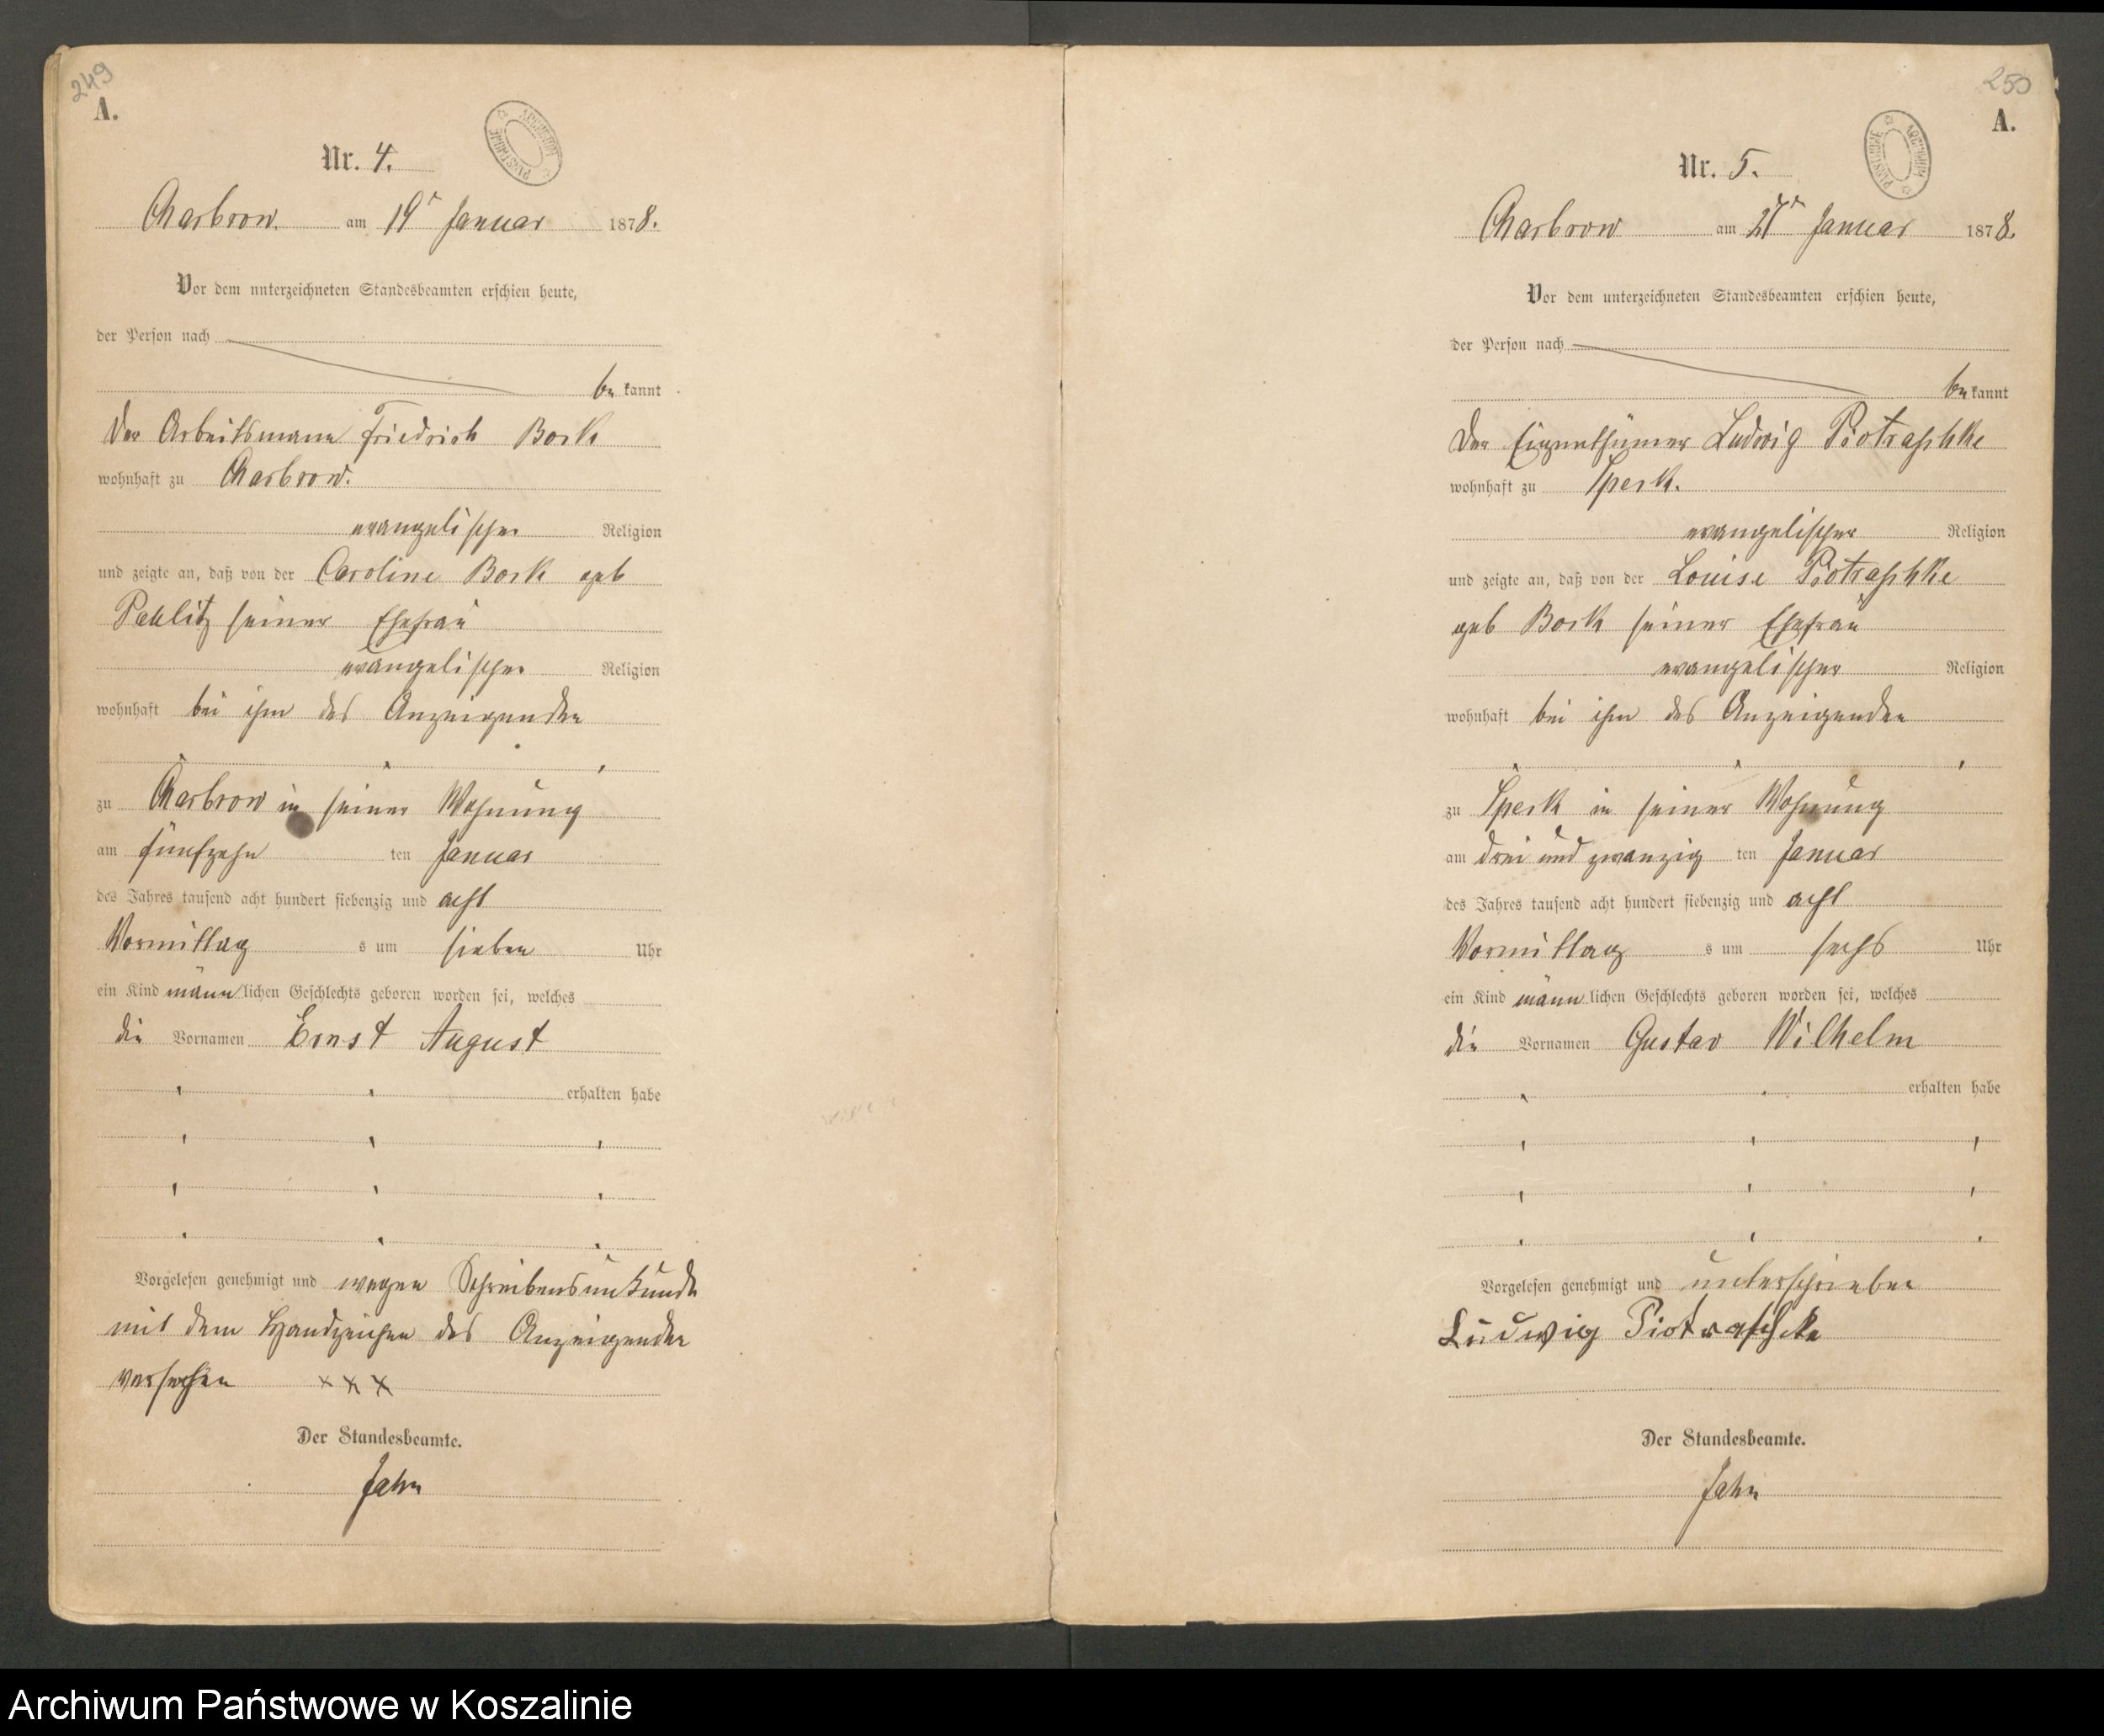 249
A.
ARCHIWUM PAŃSTWOWE
Nr. 4.
Charbrow. am 19t Januar 1878.
Vor dem unterzeichneten Standesbeamten erschien heute,
der Person nach
bekannt
der Arbeitsmann Friedrich Bork
wohnhaft zu Charbrow.
evangelischer Religion
und zeigte an, daß von der Caroline Bork geb
seiner Ehefrau
evangelischer Religion
wohnhaft bei ihm des Anzeigenden
zu Charbrow in seiner Wohnung
am fünfzehn ten Januar
des Jahres tausend acht hundert siebenzig und acht
Vormittag s um sieben Uhr
ein Kind männlichen Geschlechts geboren worden sei, welches
die Vornamen Ernst August
erhalten habe
Vorgelesen genehmigt und wegen Schreibensunkunde
mit dem Handzeichen des Anzeigenden
versehen xxx
Der Standesbeamte.
Jahn
250
A.
ARCHIWUM PAŃSTWOWE
Nr. 5.
Charbrow am Januar 1878.
Vor dem unterzeichneten Standesbeamten erschien heute,
der Person nach
bekannt
der Eigenthümer Ludwig Piotraschke
wohnhaft zu Speck.
evangelischer Religion
und zeigte an, daß von der Louise Piotraschke
geb Bork seiner Ehefrau
evangelischer Religion
wohnhaft bei ihm des Anzeigenden
zu Speck in seiner Wohnung
am drei und zwanzig ten Januar
des Jahres tausend acht hundert siebenzig und acht
Vormittag s um sechs Uhr
ein Kind männlichen Geschlechts geboren worden sei, welches
die Vornamen Gustav Wilhelm
erhalten habe
Vorgelesen genehmigt und unterschrieben
Ludwig Piotraschke
Der Standesbeamte.
Jahn
Archiwum Państwowe w Koszalinie